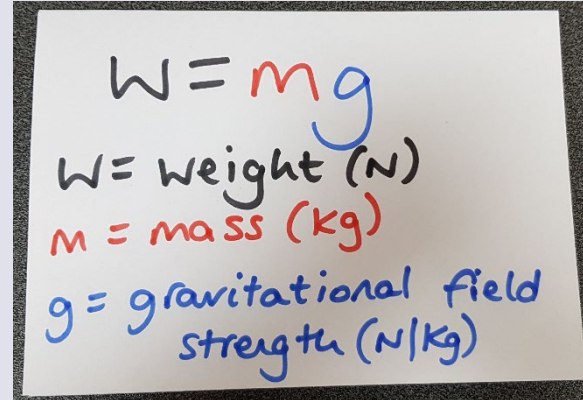 W = mg
W = Weight (N)
m = mass (kg)
g = gravitational field
strength (N/kg)